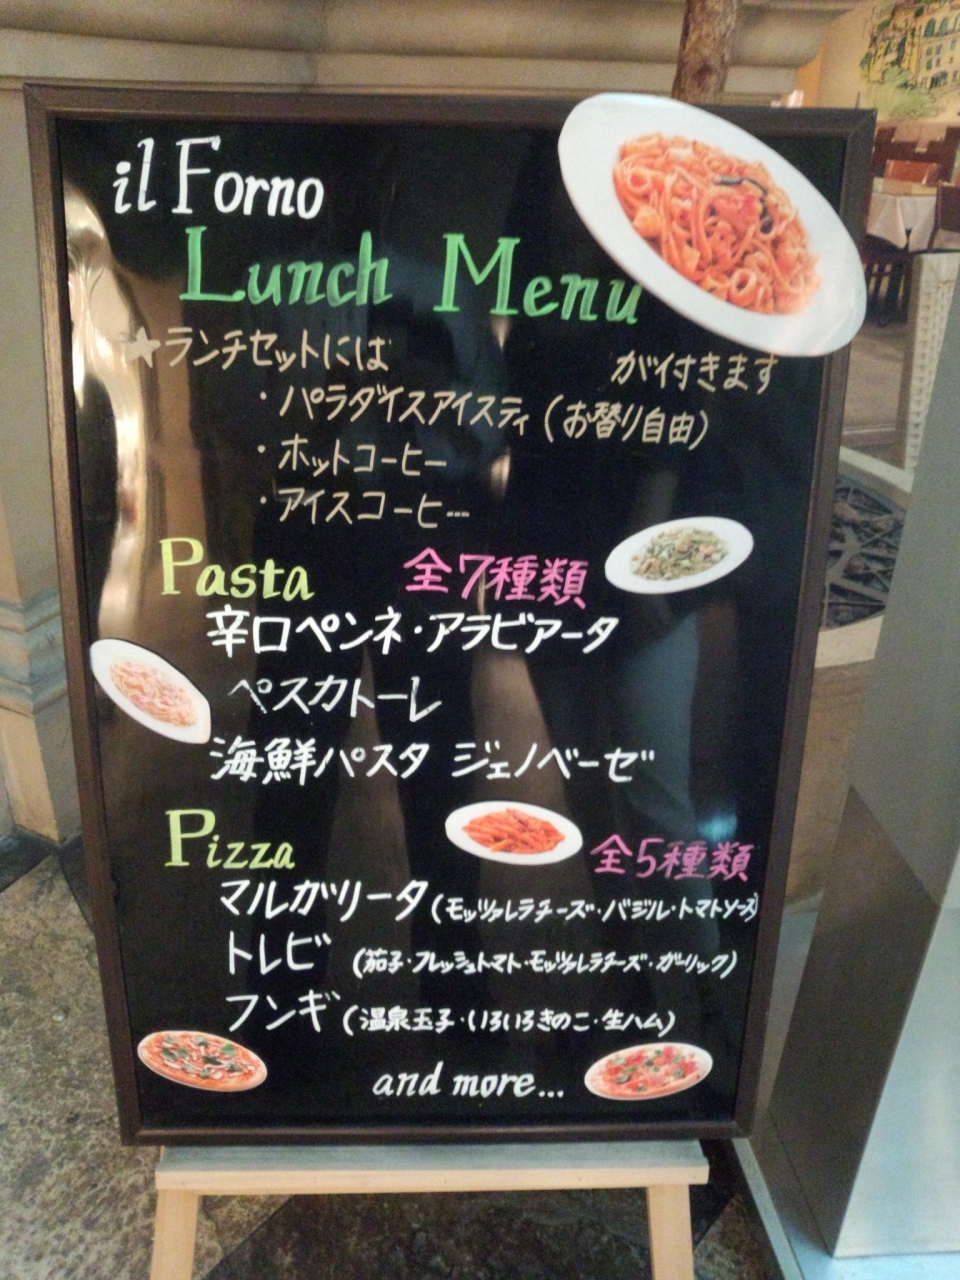 il Forno
Lunch Menu
★ランチセットには が付きます
・パラダイスアイスティ(お替り自由)
・ホットコーヒー
・アイスコーヒー…
Pasta 全7種類
辛口ペンネ・アラビアータ
ペスカトーレ
海鮮パスタ ジェノベーゼ
Pizza 全5種類
マルガリータ(モッツァレラチーズ・バジル・トマトソース)
トレビ (茄子・フレッシュトマト・モッツァレラチーズ・ガーリック)
フンギ(温泉玉子・いろいろきのこ・生ハム)
and more...